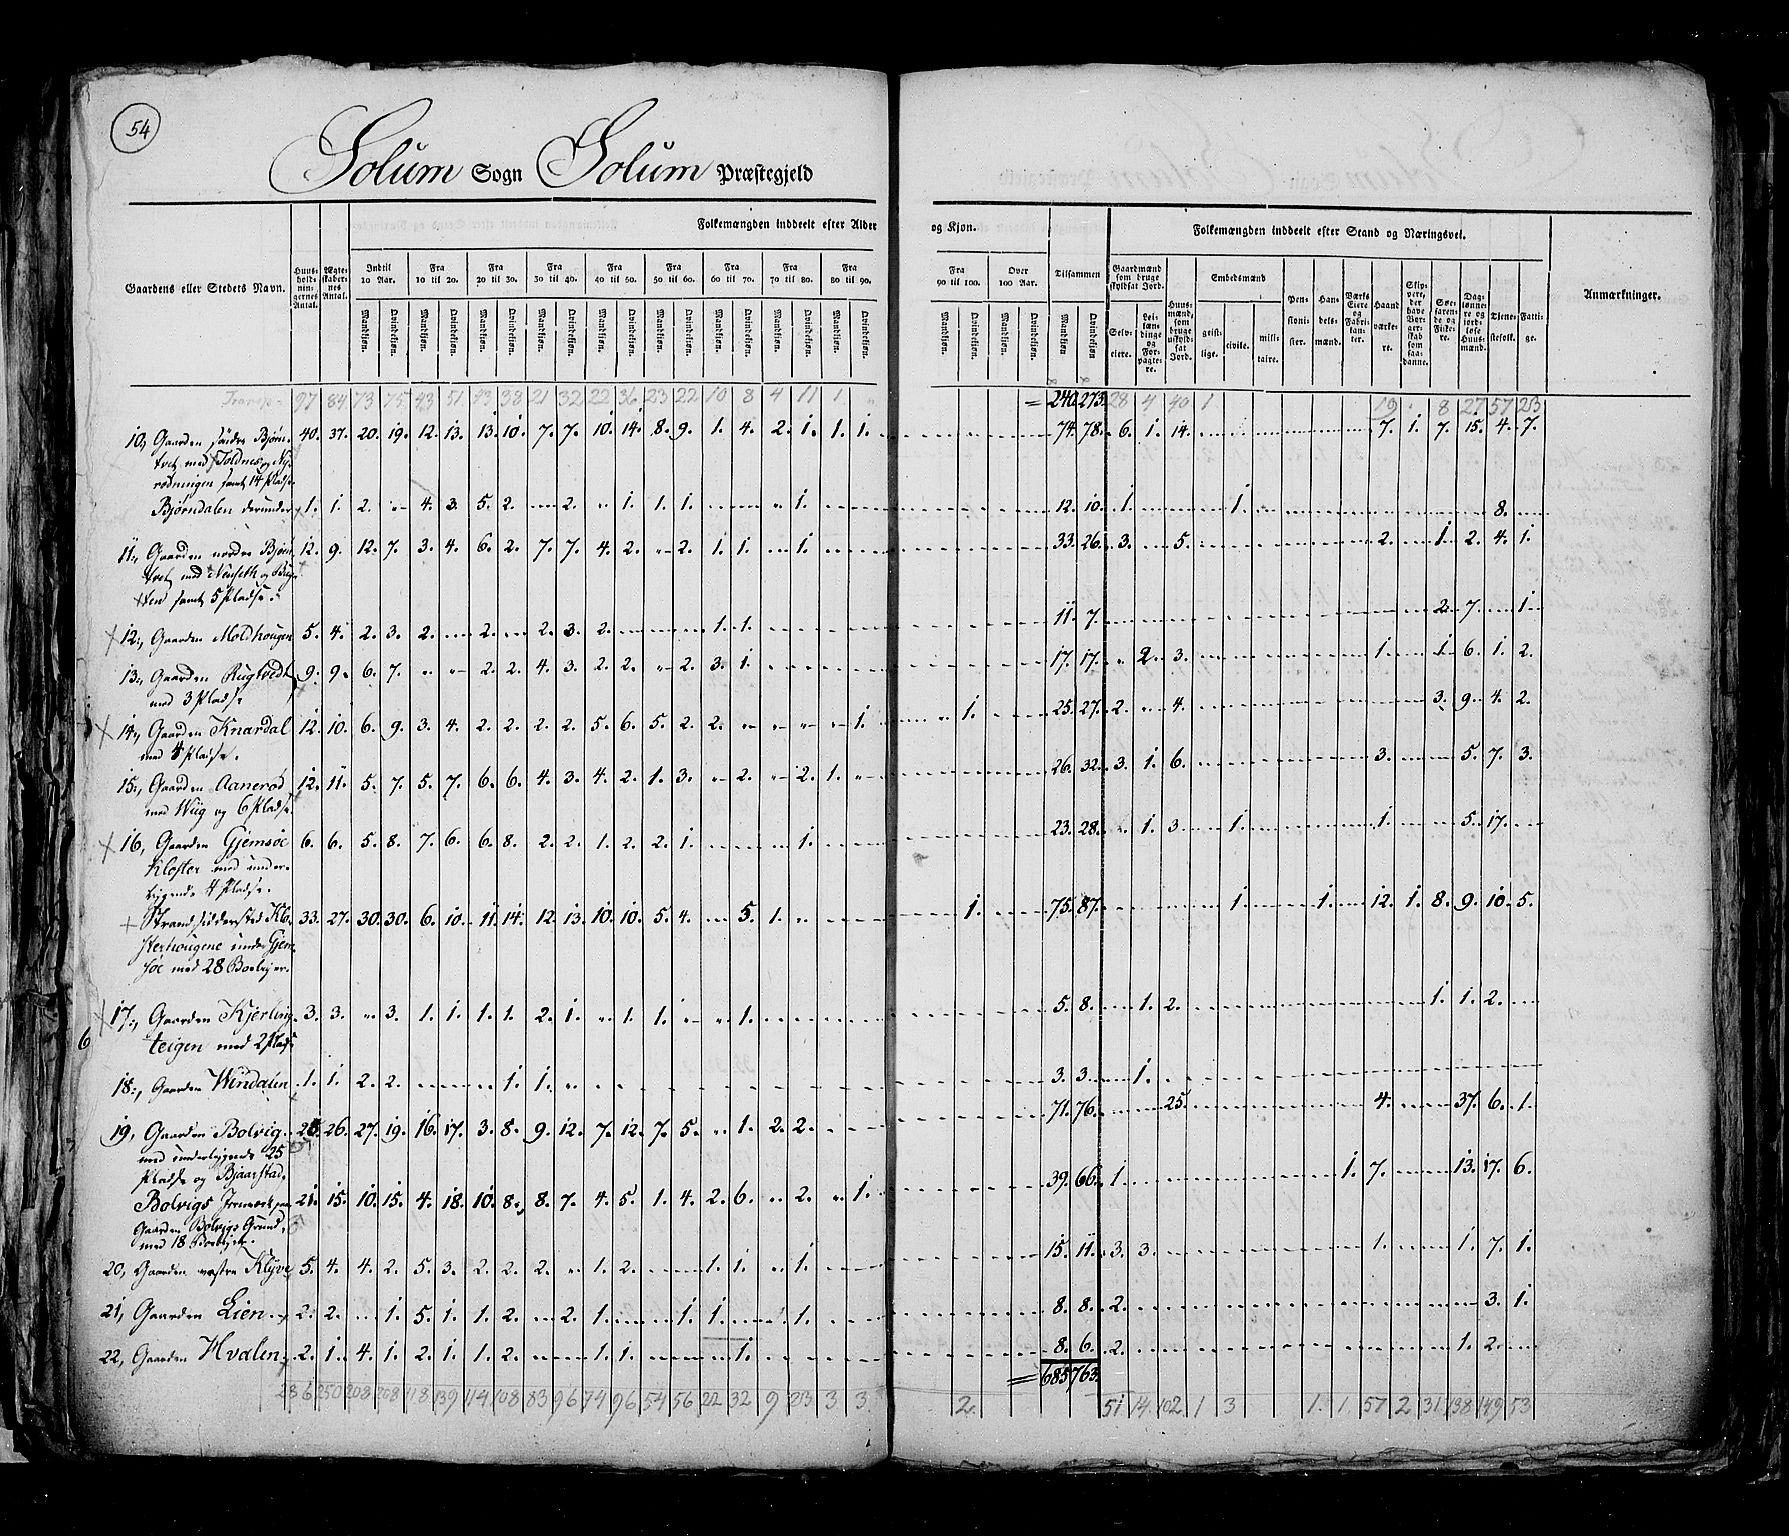 54
Solum Sogn Solum Præstegjeld
Gaardens eller Stedets Navn.
Huus-holdnin-gernes Antal.
Ægte-skaber-nes Antal.
Folkemængden inddeelt efter Alder og Kjøn.
Indtil 10 Aar.
Fra 10 til 20.
Fra 20 til 30.
Fra 30 til 40.
Fra 40 til 50.
Fra 50 til 60.
Fra 60 til 70.
Fra 70 til 80.
Fra 80 til 90.
Fra 90 til 100.
Over 100 Aar.
Tilsammen
Mandkjøn. Qvindekjøn.
Folkemængden inddeelt efter Stand og Næringsvei.
Gaardmænd som bruge skyldsat Jord.
Selv-eiere.
Lei-læn-dinge og For-pagte-re.
Huus-mænd, som bruge uskyld-sat Jord.
Embedsmænd
geist-lige. civile. mili-taire.
Pen-sioni-ster.
Han-dels-mænd.
Værks Eiere og Fabri-kan-ter.
Haand værke-re.
Skip-pere, der have Bor-ger-skab som saa-danne.
Søe-farende og Fiske-re.
Dag-lønne-re og jord-løse Huus-mænd.
Tjene-stefolk.
Fatti-ge.
Anmærkninger.
Transp. 97 84 73 75 43 51 43 38 21 32 22 36 23 22 10 8 4 11 1. = 240 273. 28 4 40 1 19 8 27 57 23
10, Gaarden søndre Bjørn- 40. 37. 20. 19. 12. 13. 13. 10. 7. 7. 10. 14. 8. 9. 1. 4. 2. 1. 1. 1. 74. 78. 6. 1. 14. 7. 1. 7. 15. 4. 7.
tvet med Toldnes og Ny-
rødningen samt 14 Pladse.
Bjørndalen derunder 1. 1. 2. " 4. 3. 5. 2. 2. " 1. 1. 1. " 1. 12. 10. 1. 1. 8.
11, Gaarden nordre Bjørn- 12. 9. 12. 7. 3. 4. 6. 2. 7. 7. 4. 2. " 2. 1. 1. 1. 33. 26. 3. 5. 2. 1. 2. 4. 1.
tvet med Nenseth og
samt 5 Pladse.
12, Gaarden Moldhougen 5. 4. 2. 3. 2. 2. 2. 3. 2. 1. 1. 11. 7. 2. 7. 1.
13, Gaarden Rugtvedt 9. 9. 6. 7. " " 2. 2. 4. 3. 2. 2. " 2. 3. 1. 17. 17. " 2. 3. 1. 1. 6. 1. 2.
med 3 Pladse
14, Gaarden Knardal 12. 10. 6. 9. 3. 4. 2. 2. 2. 2. 5. 6. 5. 2. 2. 1. 1. 25. 27. 2. " 4. 3. 9. 4. 2.
med 4 Pladse.
15, Gaarden Aanerød 12. 11. 5. 7. 5. 7. 6. 6. 4. 3. 4. 2. 1. 3. " 2. " 2. 1. " 26. 32. 3. 1. 6. 3. 5. 7. 3.
med Wiig og 6 Pladse.
16, Gaarden Gjemsøe 6. 6. 5. 8. 7. 6. 6. 8. 2. 2. 1. 2. 2. 1. 1. 23. 28. " 1. 3. 1. 1. 5. 17.
Kloster med under-
liggende 4 Pladse.
Strandsiddersted Klo- 33. 27. 30. 30. 6. 10. 11. 14. 12. 13. 10. 10. 5. 4. 5. 1. " 1. 75. 87. 1. 1. 12. 1. 8. 9. 10. 5.
sterhougene under Gjem-
søe med 28 Boeliger.
17, Gaarden Kjerling- 3. 3. " 3. 1. 1. 1. 1. 2. 1. " 1. 1. " " 1. 5. 8. 1. 2. 1. 1. 2.
teigen med 2 Pladse
6
18, Gaarden Windalen 1. 1. 2. 2. 1. 1. " 3. 3. 1.
19, Gaarden Bolvig 28. 26. 27. 19. 16. 17. 3. 8. 9. 12. 7. 12. 7. 5. 1. 2. 2. 71. 76. 25. 4. 37. 6. 1.
med underliggende 25
Pladse og Bjaarstad.
Bolvigs Jernverk paa 21. 15. 10. 15. 4. 18. 10. 8. 8. 7. 4. 5. 1. 4. 2. 6. " 2. " 1. 39. 66. 1. 1. 7. 13. 17. 6.
Gaarden Bolvigs Grund,
med 18 Boeliger.
20, Gaarden vestre Klyve 5. 4. 4. 2. 5. 3. 2. 2. 2. " 1. 2. 1. 1. " 1. 15. 11. 3. 3. 1. 1. 7. 1.
21, Gaarden Lien 2. 2. 1. 5. 1. 1. 2. 2. 1. 1. 1. 1. 8. 8. 2. 3. 1.
22, Gaarden Hvalen 2. 1. 4. 1. 2. 1. 1. 2. 1. 1. 1. 8. 6. 2. 1. 2.
286 250 208 208 118 139 114 108 83 96 74 96 54 56 22 32 9 23 3 3. 2. = 685 763. 51 14. 102 1 3 1. 1. 57 2 31 138 149 53